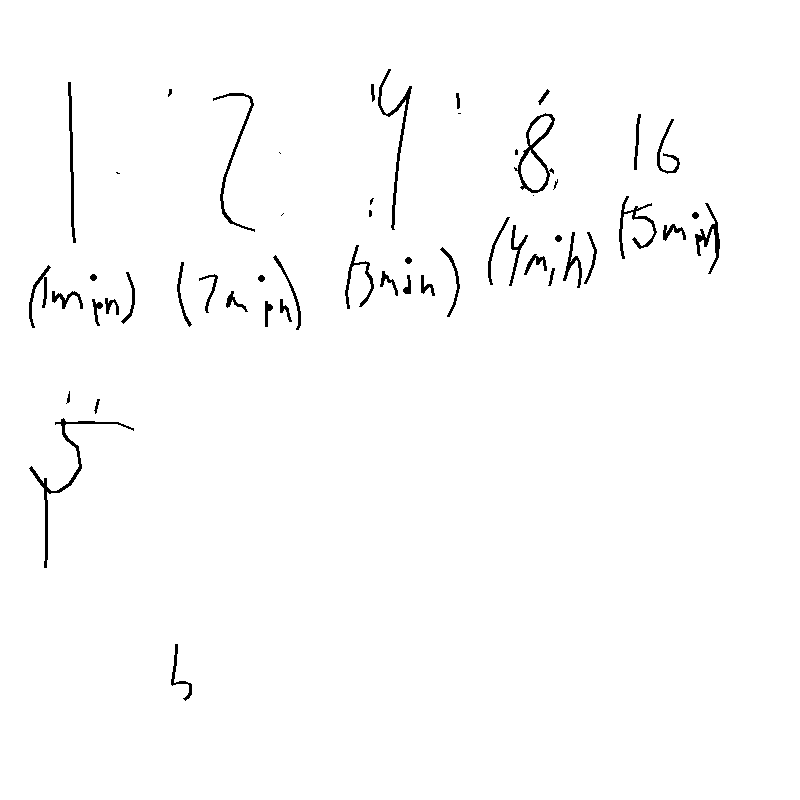 1 2 4 8 16
(1min) (2min) (3min) (4min) (5min)